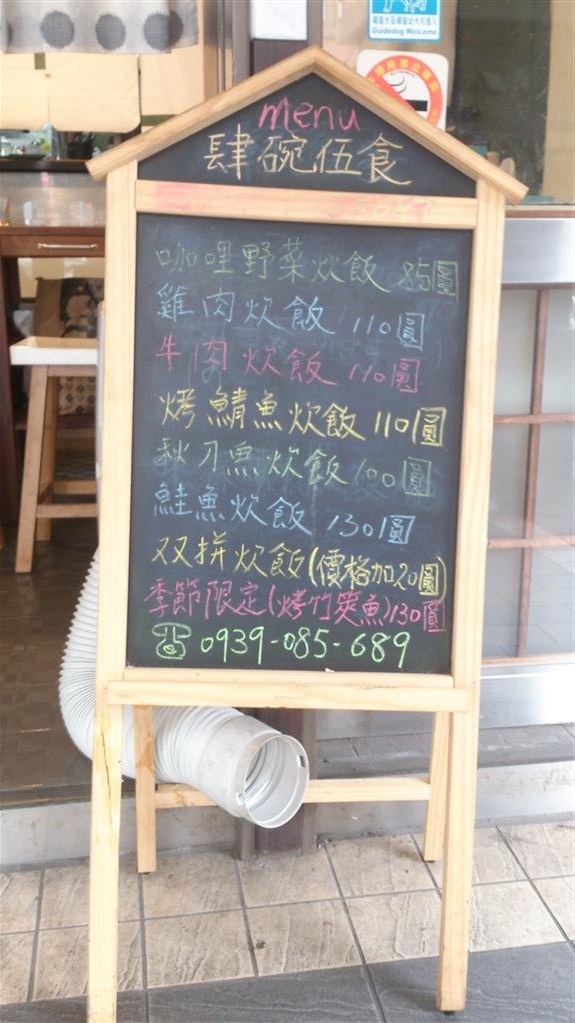 Guidedog Welcome
menu
肆碗伍食
咖哩野菜炊飯 85圓
雞肉炊飯 110圓
牛肉炊飯 110圓
烤鯖魚炊飯 110圓
秋刀魚炊飯 100圓
鮭魚炊飯 130圓
双拼炊飯(價格加20圓)
季節限定(烤竹筴魚)130圓
☎ 0939-085-689